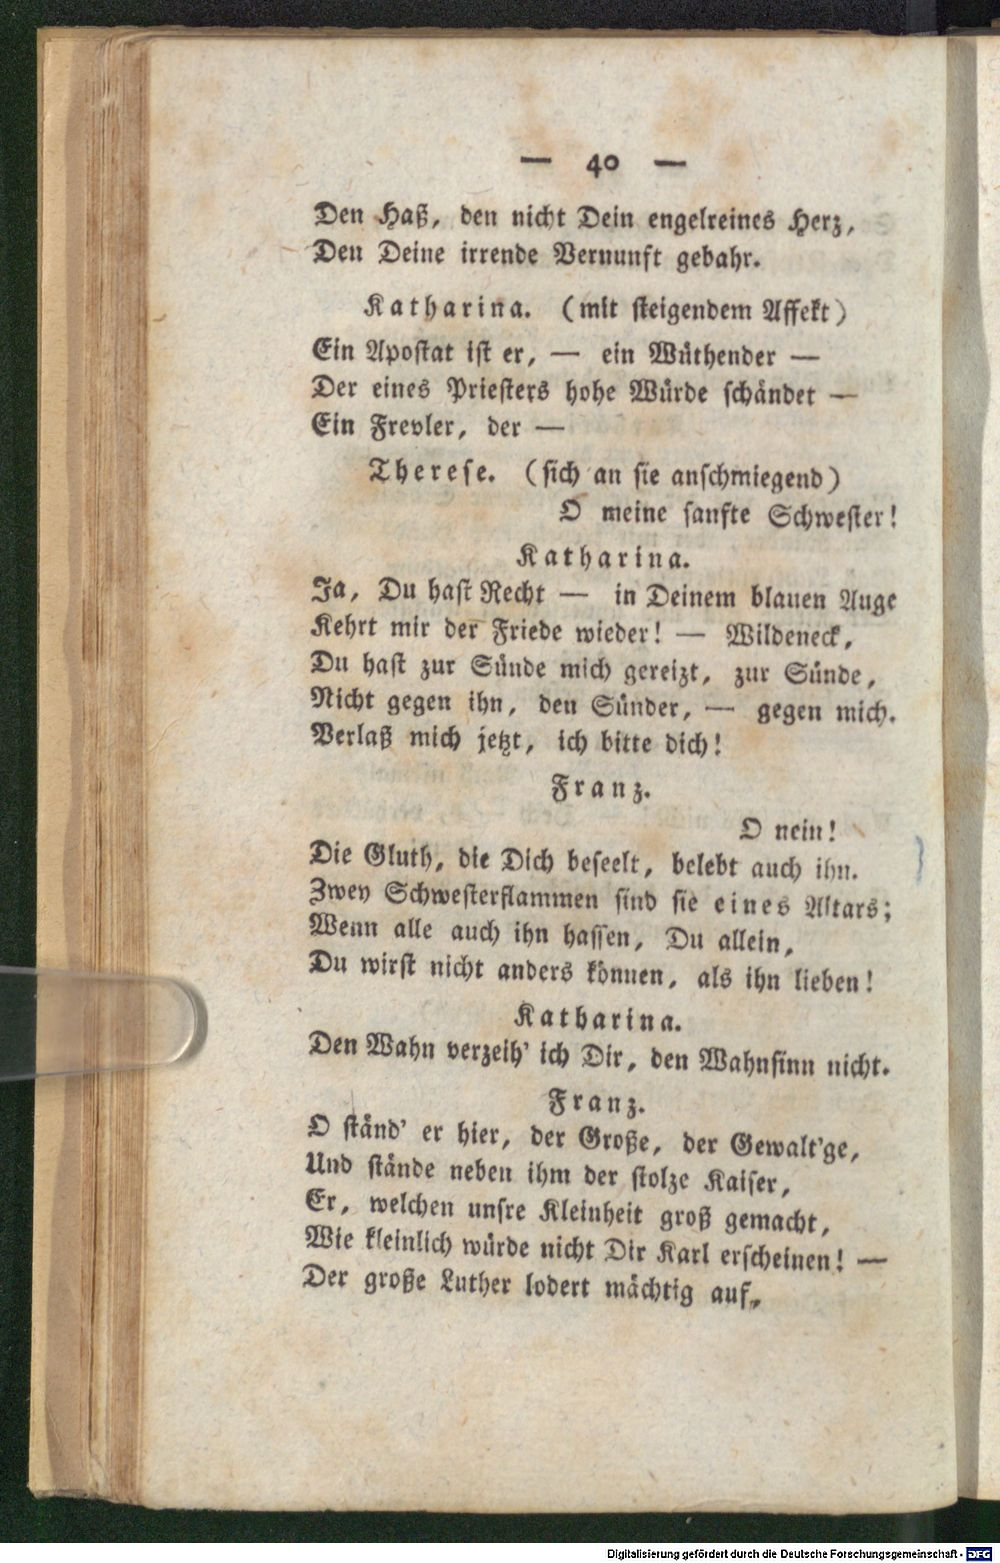 — 40 —
Den Haß, den nicht Dein engelreines Herz,
Den Deine irrende Vernunft gebahr.
Katharina. (mit steigendem Affekt)
Ein Apostat ist er, — ein Wüthender —
Der eines Priesters hohe Würde schändet —
Ein Frevler, der —
Therese. (sich an sie anschmiegend)
O meine sanfte Schwester!
Katharina.
Ja, Du hast Recht — in Deinem blauen Auge
Kehrt mir der Friede wieder! — Wildeneck,
Du hast zur Sünde mich gereizt, zur Sünde,
Nicht gegen ihn, den Sünder, — gegen mich.
Verlaß mich jetzt, ich bitte dich!
Franz.
O nein!
Die Gluth, die Dich beseelt, belebt auch ihn.
Zwey Schwesterflammen sind sie eines Altars;
Wenn alle auch ihn hassen, Du allein,
Du wirst nicht anders können, als ihn lieben!
Katharina.
Den Wahn verzeih' ich Dir, den Wahnsinn nicht.
Franz.
O ständ' er hier, der Große, der Gewalt'ge,
Und stände neben ihm der stolze Kaiser,
Er, welchen unsre Kleinheit groß gemacht,
Wie kleinlich würde nicht Dir Karl erscheinen! —
Der große Luther lodert mächtig auf,
Digitalisierung gefördert durch die Deutsche Forschungsgemeinschaft - DFG